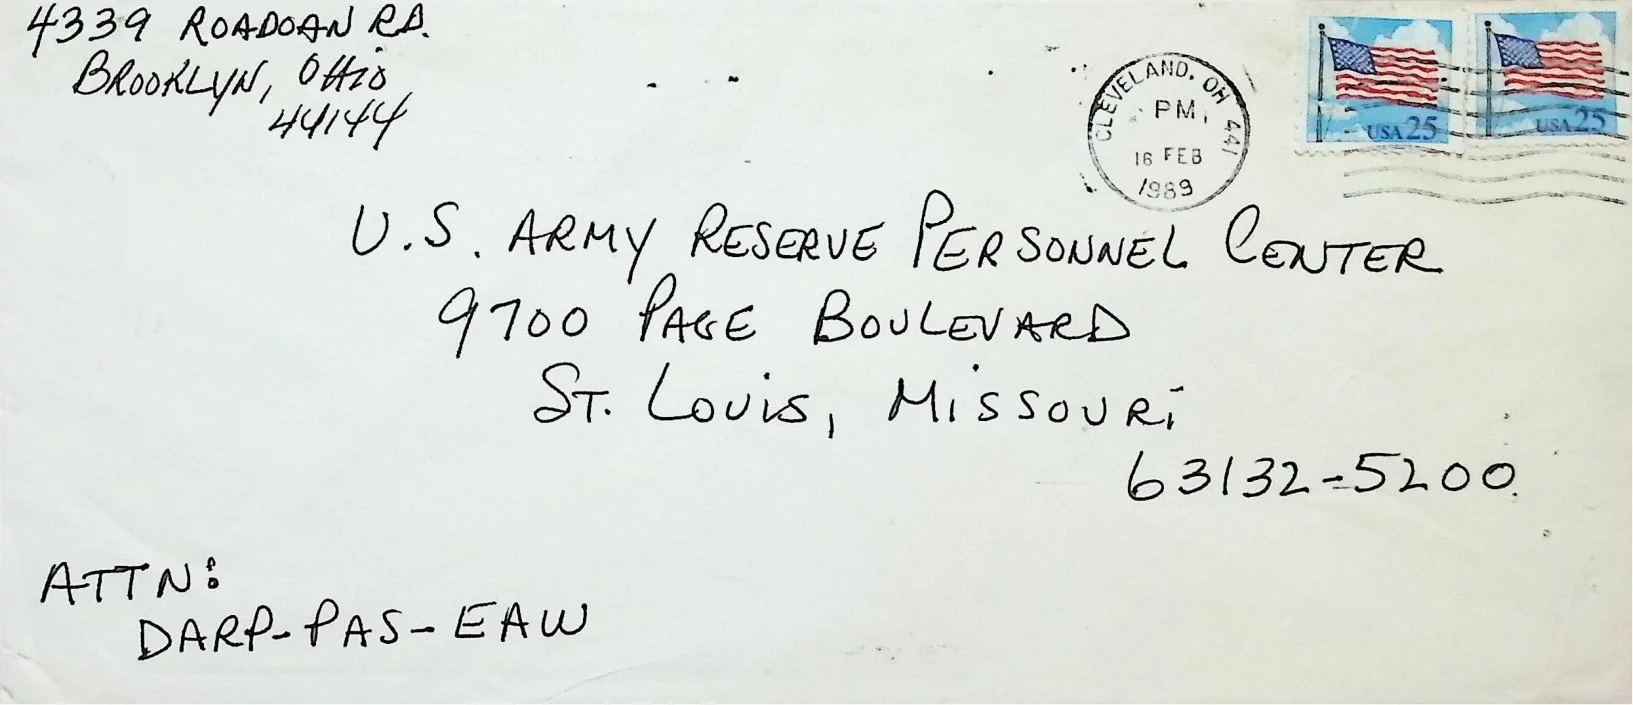 4339 ROADOAN RD.
BROOKLYN, OHIO
44144
CLEVELAND, OH 441
PM
16 FEB
1989
USA 25
USA 25
U.S. ARMY RESERVE PERSONNEL CENTER
9700 PAGE BOULEVARD
ST. LOUIS, MISSOURI
63132-5200
ATTN:
DARP-PAS-EAW